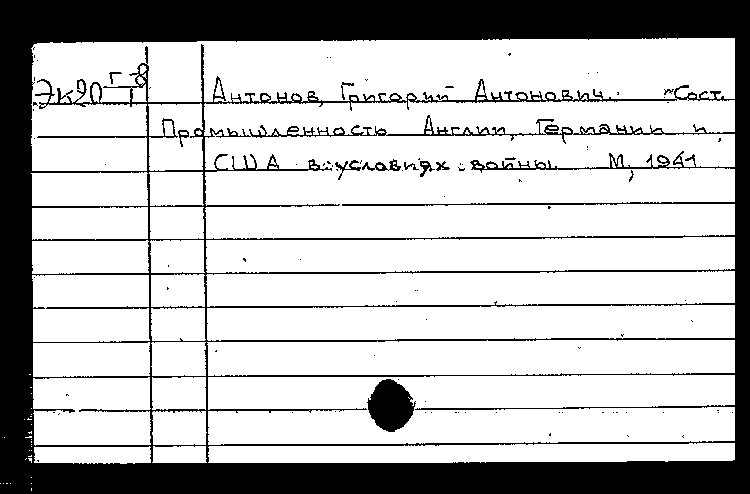 Эк20 Г-8/1 Антонов, Григорий Антонович. Сост.
Промышленность Англии, Германии и
США в условиях войны М, 1941